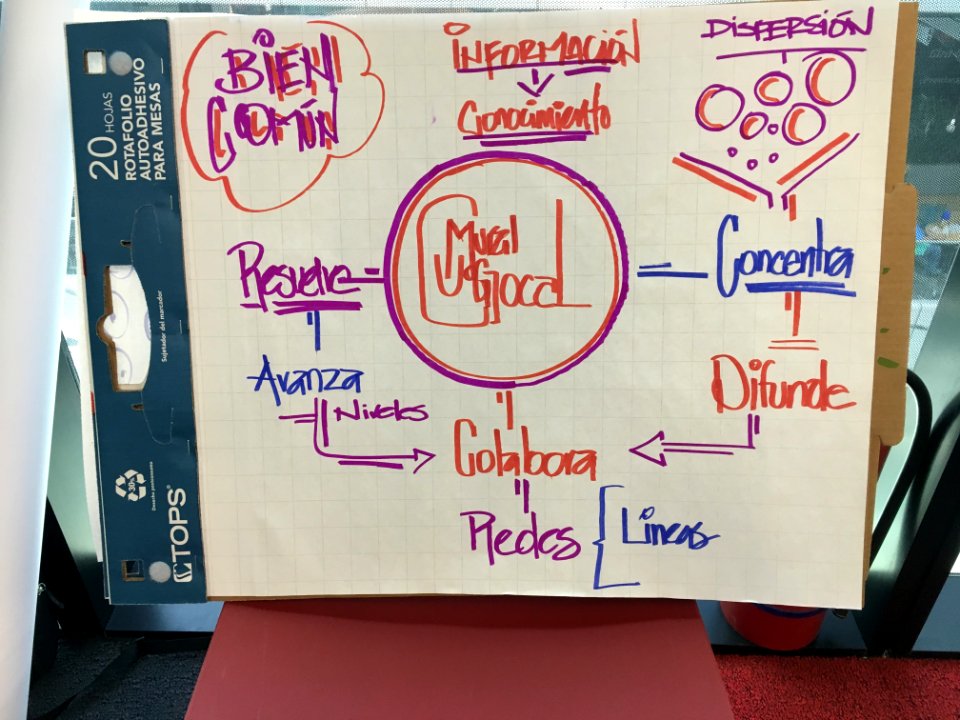 20 HOJAS
ROTAFOLIO
AUTOADHESIVO
PARA MESAS
Sujetador del marcador
30%
TOPS®
BIEN
COMÚN
INFORMACIÓN
Conocimiento
DISPERSIÓN
Mural
Glocal
Resuelve
Concentra
Avanza
Niveles
Difunde
Colabora
Redes { Lineas